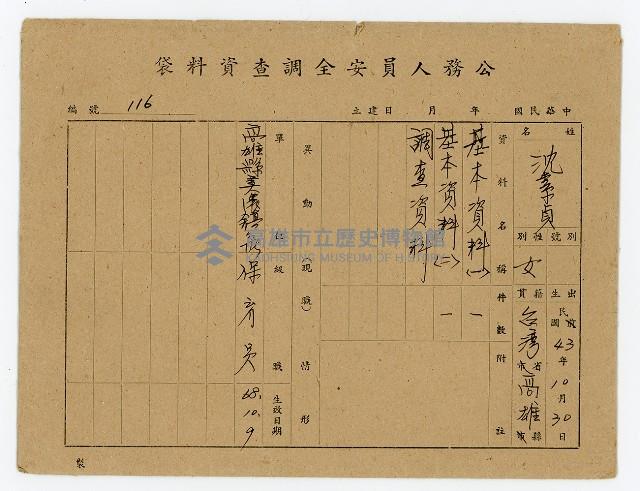 公務人員安全調查資料袋
中華民國 年 月 日建立
編號 116
姓名
沈素貞
別號
性別
女
出生
民國前
43年10月30日
籍貫
台灣省市
高雄縣市
資料名稱
件數
附註
基本資料(一)
一
基本資料(二)
一
調查資料
異動(現職)情形
單位
級職
生效日期
高雄縣美濃鎮
保育員
68.10.9
製
高雄市立歷史博物館
KAOHSIUNG MUSEUM OF HISTORY